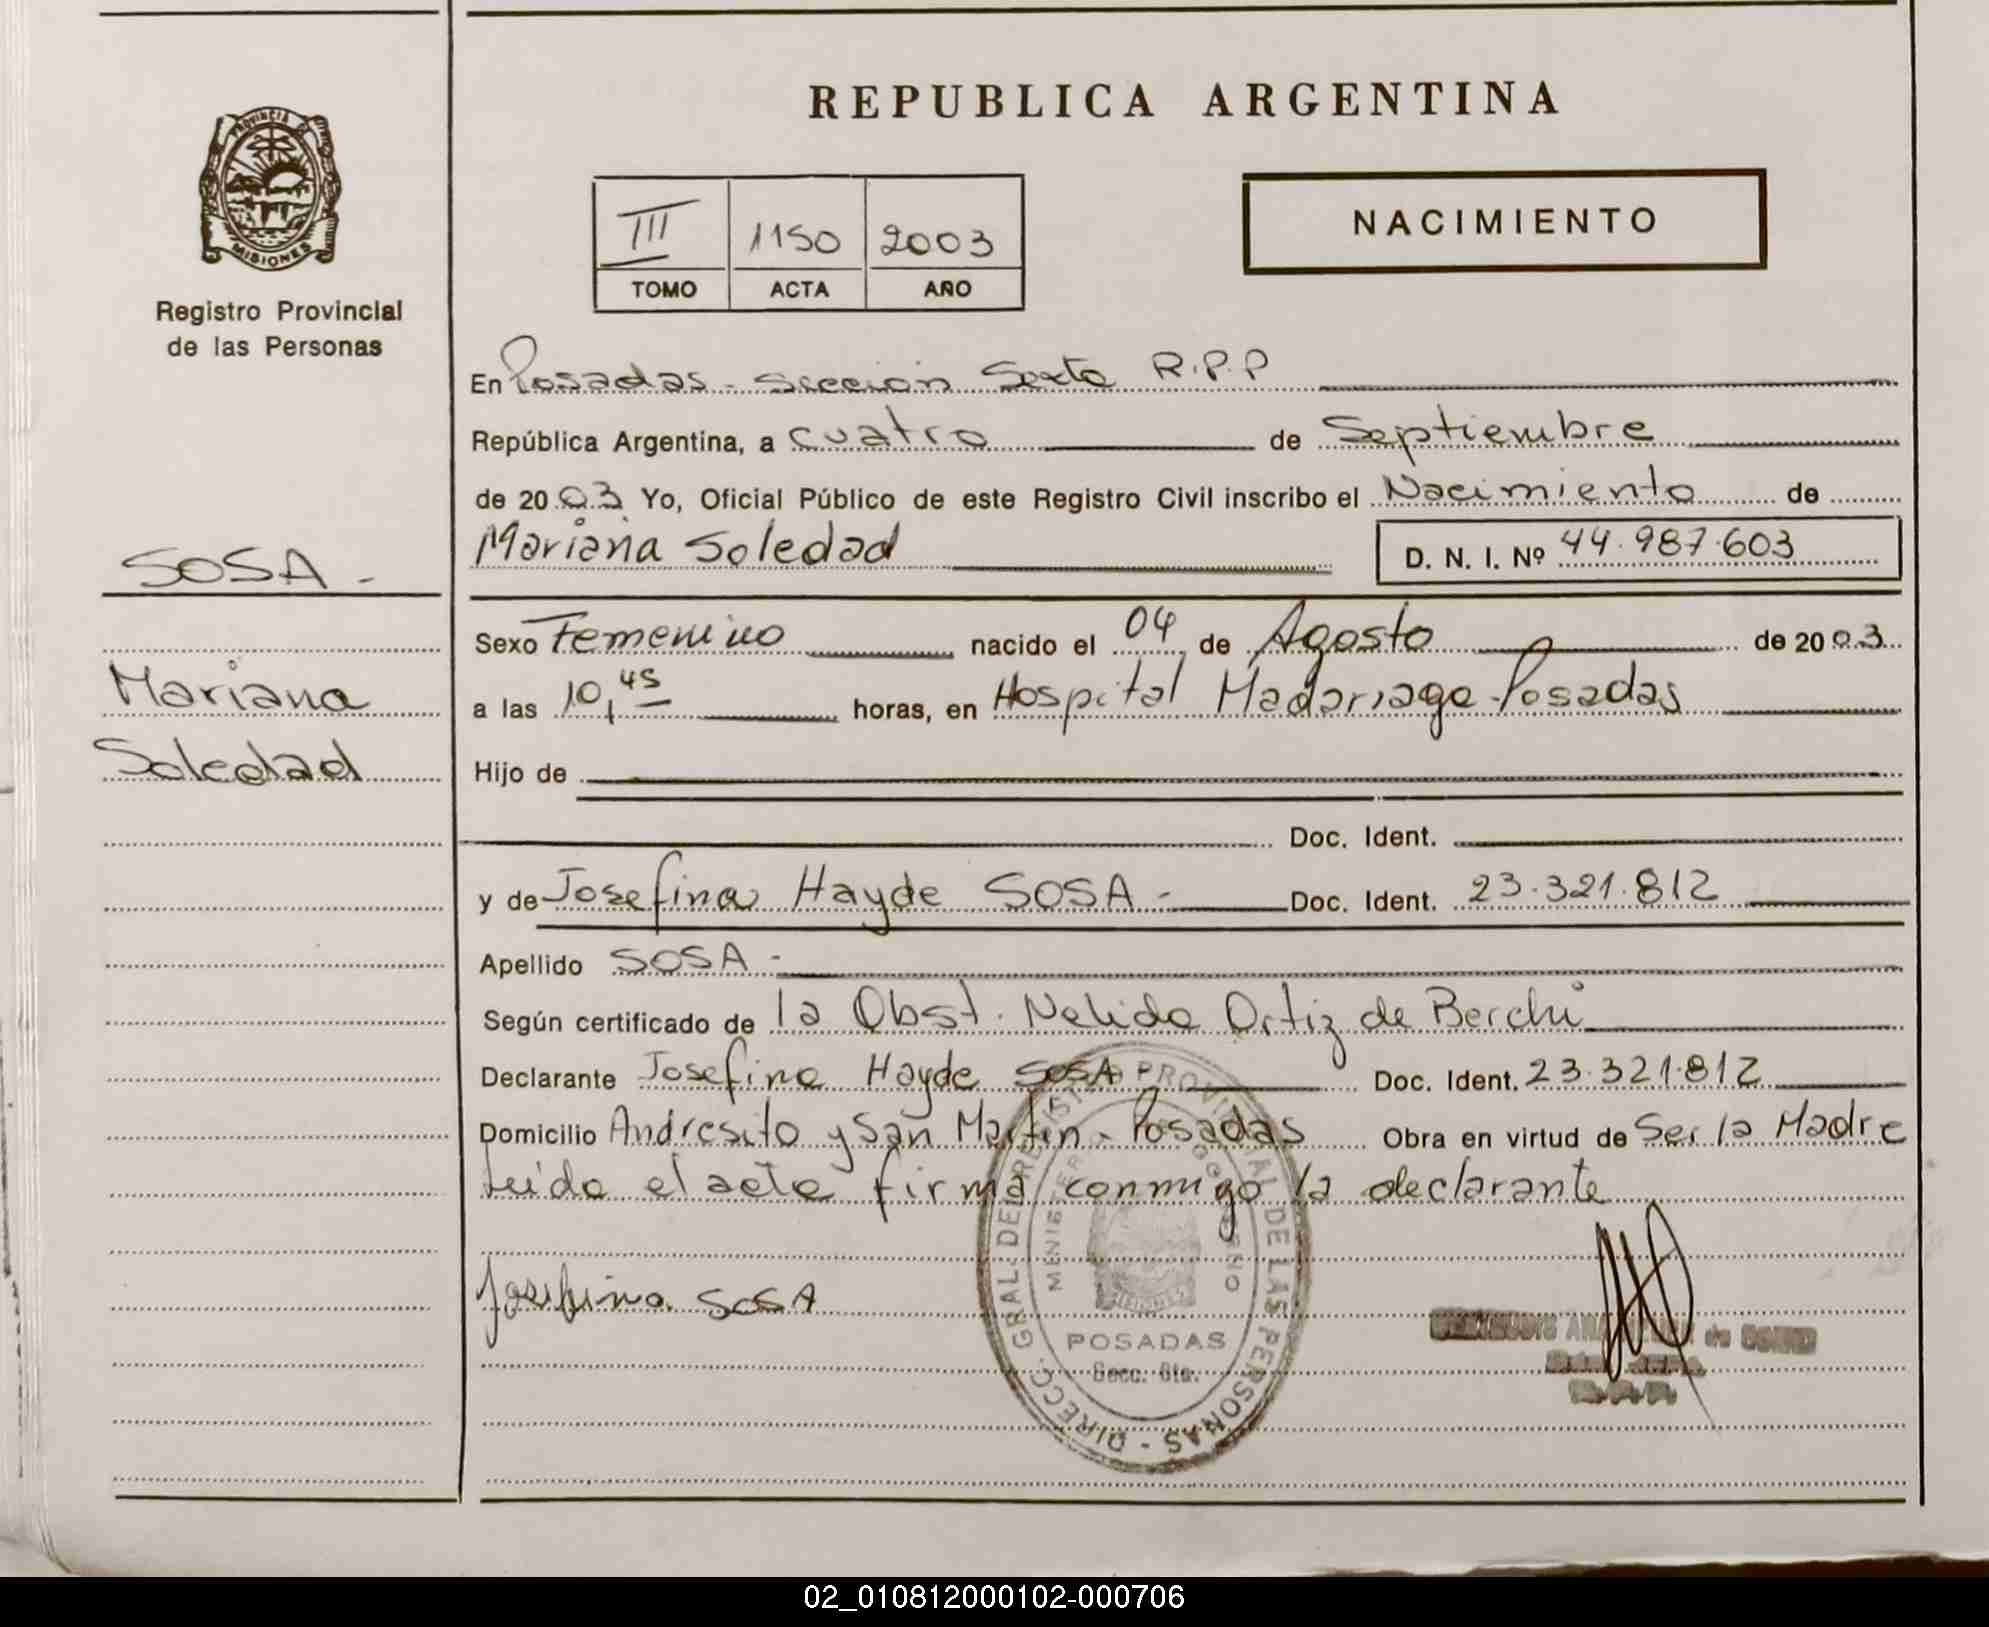 REPUBLICA ARGENTINA
PROVINCIA
MISIONES
Registro Provincial
de las Personas
III 1150 2003
TOMO ACTA AÑO
NACIMIENTO
En Posadas - Sección Sexta R.P.P
República Argentina, a cuatro de Septiembre
de 2003 Yo, Oficial Público de este Registro Civil inscribo el Nacimiento de
Mariana Soledad D. N. I. Nº 44.987.603
SOSA -
Mariana
Soledad
Sexo Femenino nacido el 04 de Agosto de 2003
a las 10,45 horas, en Hospital Madariaga - Posadas
Hijo de
Doc. Ident.
y de Josefina Hayde SOSA - Doc. Ident. 23.321.812
Apellido SOSA -
Según certificado de la Obst. Nelida Ortiz de Berchi
Declarante Josefina Hayde SOSA Doc. Ident. 23.321.812
Domicilio Andresito y San Martin - Posadas Obra en virtud de Ser la Madre
Leida el acta firma conmigo la declarante
Josefina SOSA
DIRECC. GRAL. DEL REGISTRO PROVINCIAL DE LAS PERSONAS -
POSADAS
Secc. 6ta.
de
02_010812000102-000706